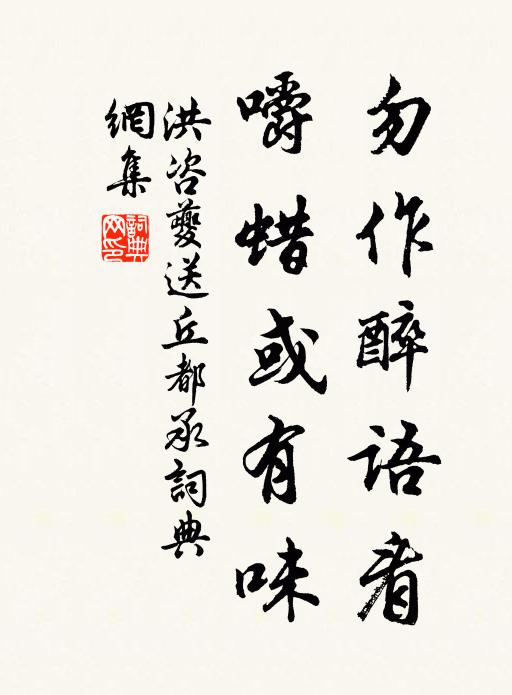 勿作醉语看
嚼蜡或有味
洪咨夔送丘都承詞典
網集
詞典網印